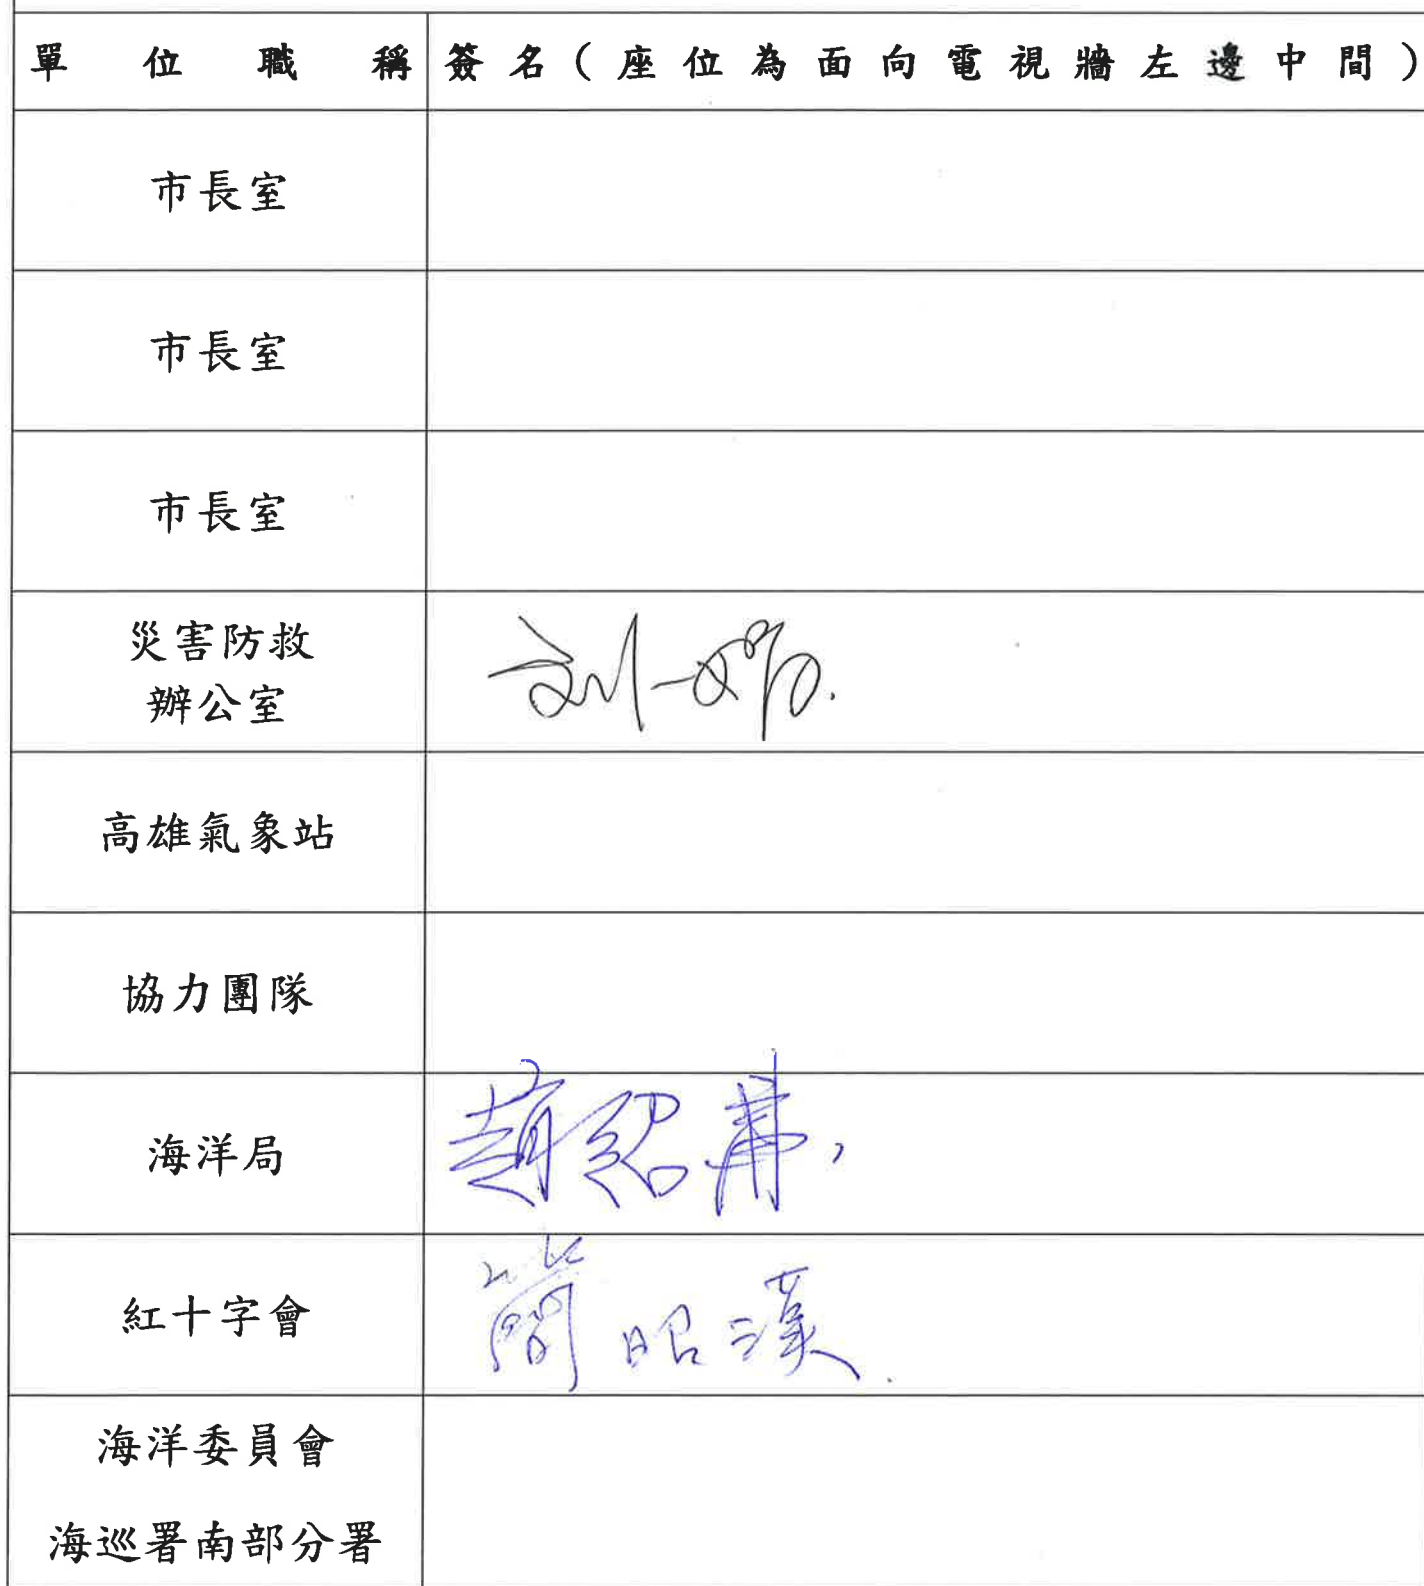 單位職稱 簽名(座位為面向電視牆左邊中間)
市長室
市長室
市長室
災害防救
辦公室
高雄氣象站
協力團隊
海洋局 趙紹
紅十字會 簡昭漢
海洋委員會
海巡署南部分署